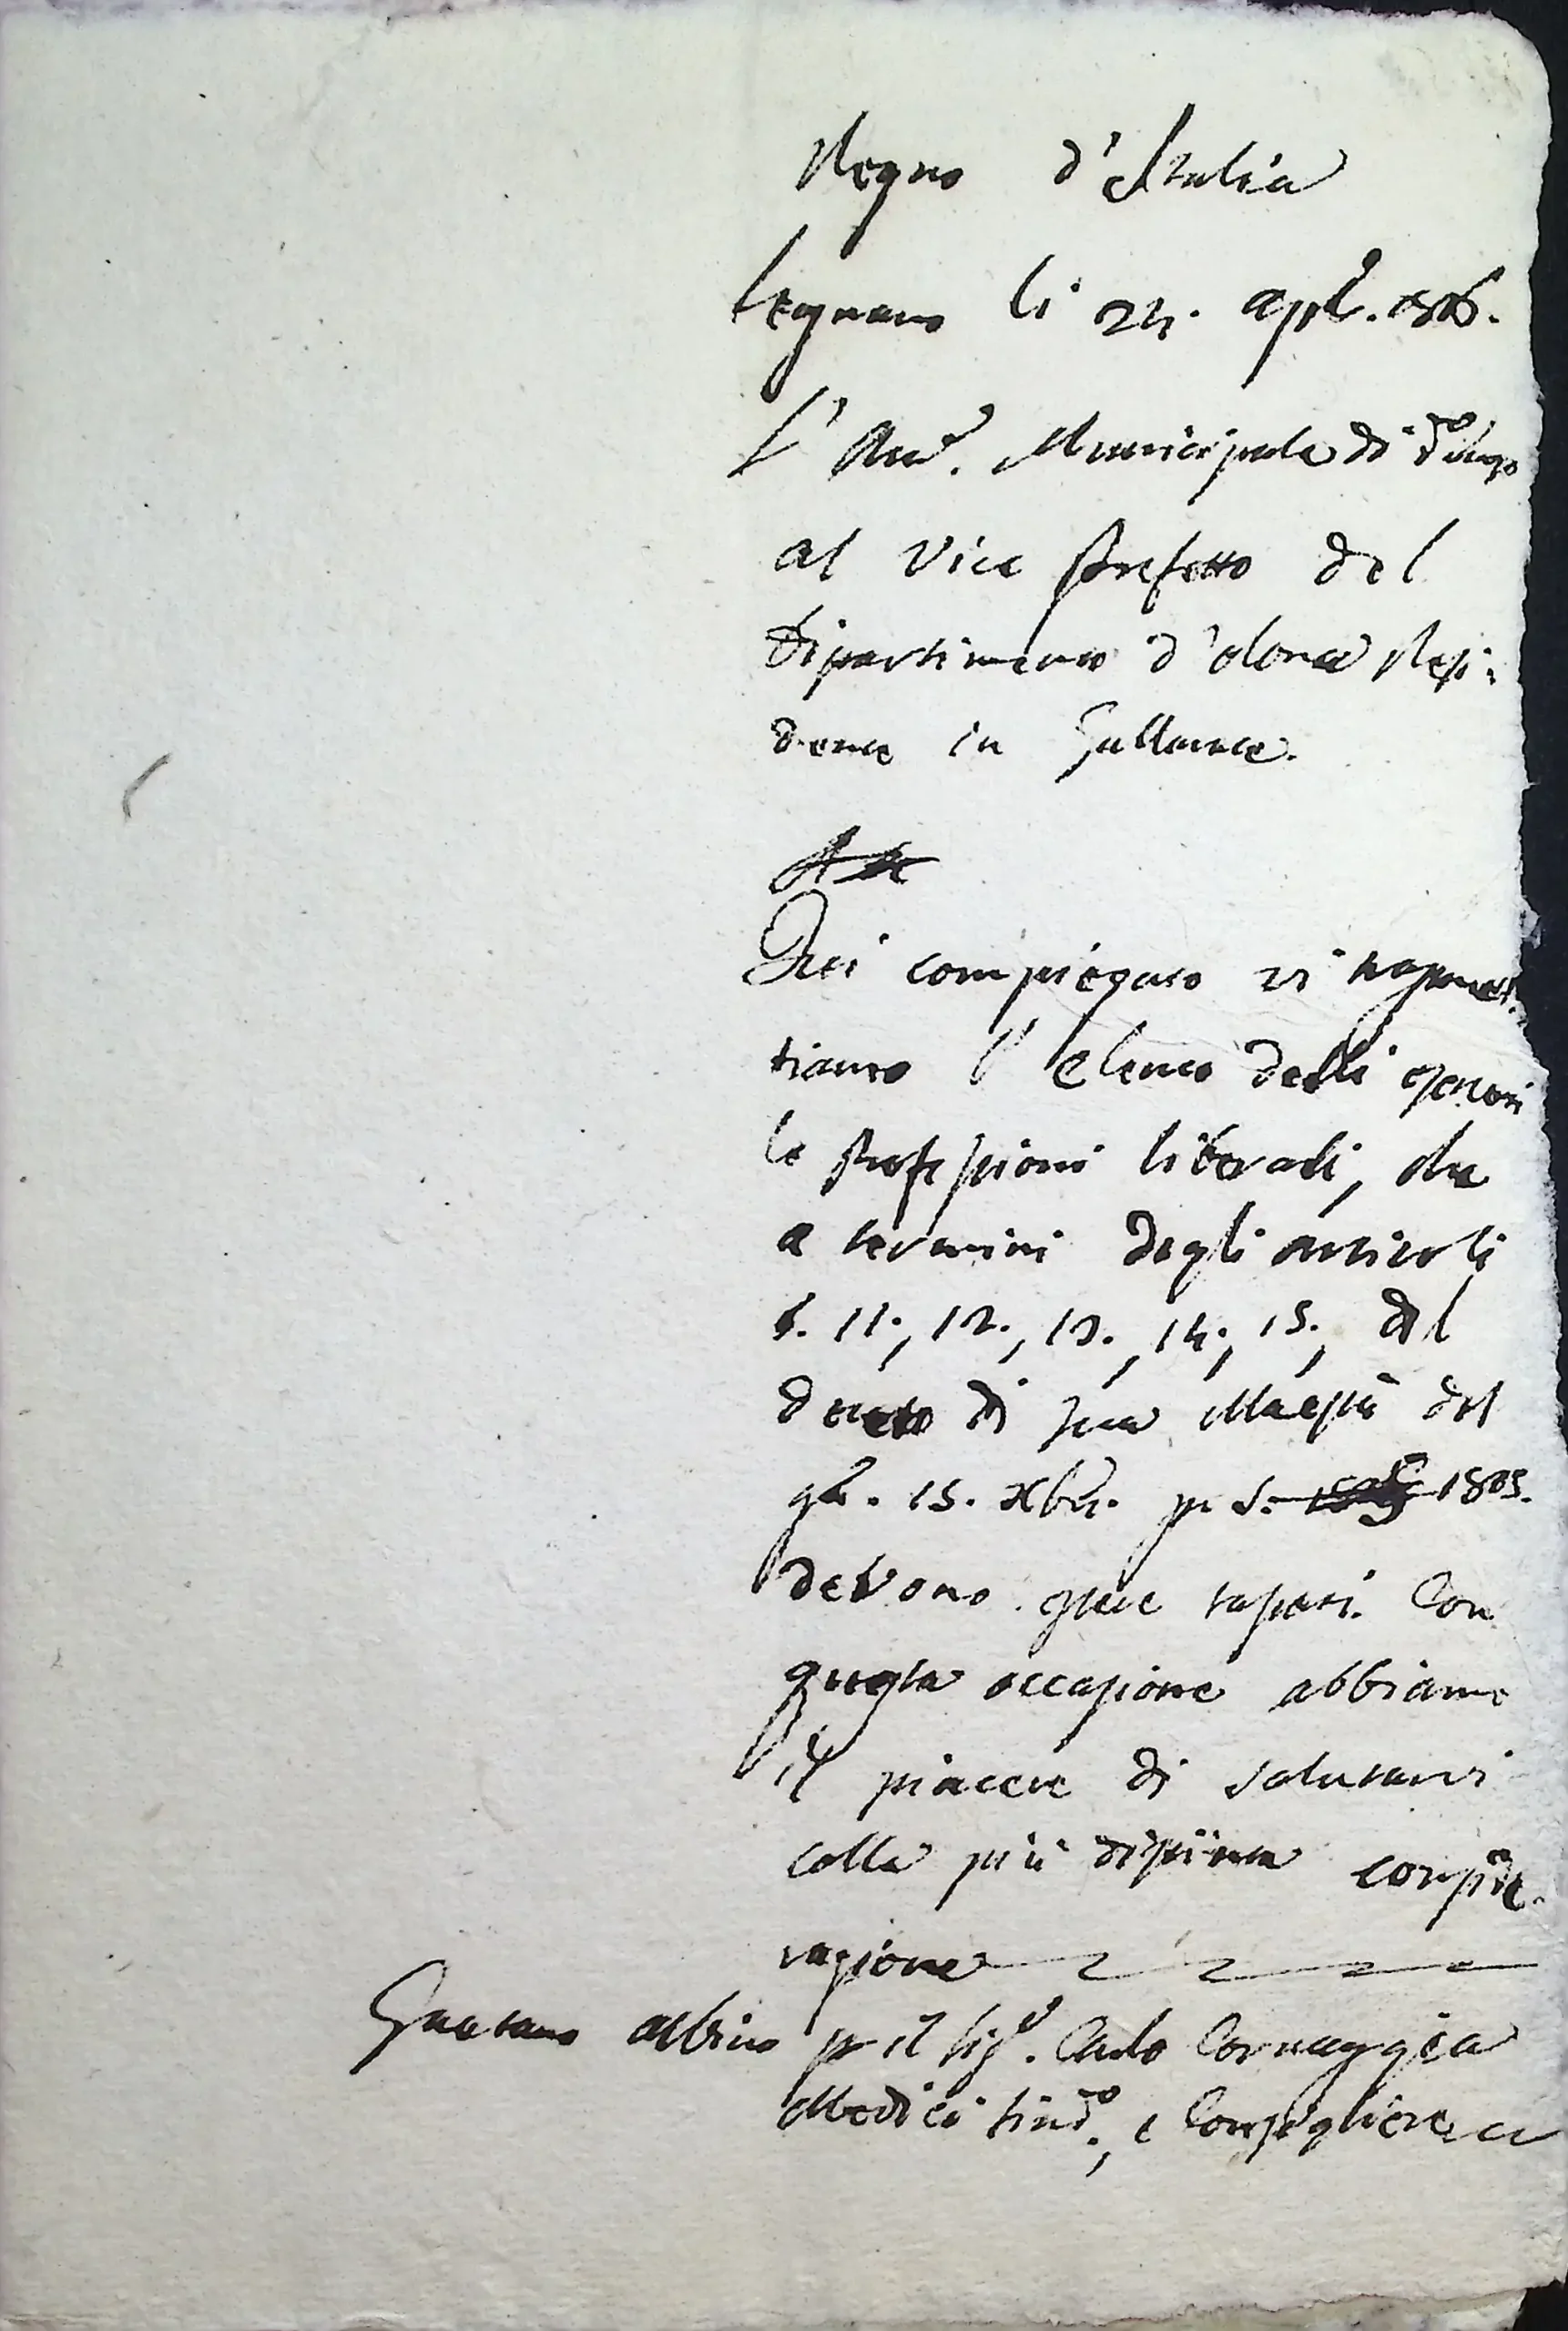 Regno d'Italia
Legnano li 24. aple. 1806.
L'Am.e Municipale di do. luogo
al Vice Prefetto del
Dipartimento d'olona Resi:
dente in Gallarate.
Qui compiegato vi trasmet:
tiamo l'elenco delli esercenti
le Professioni liberali, che
a termini degli articoli
11., 12., 13., 14., 15., del
decreto di sua Maestà del
15. Xbre. p. s. 1805.
devono essere tassati. Con
questa occasione abbiamo
il piacere di salutarvi
colla più distinta conside-
razione
Gaetano Albino per il Sigr. Carlo Cornaggia
Medici Sindo., e Consigliere